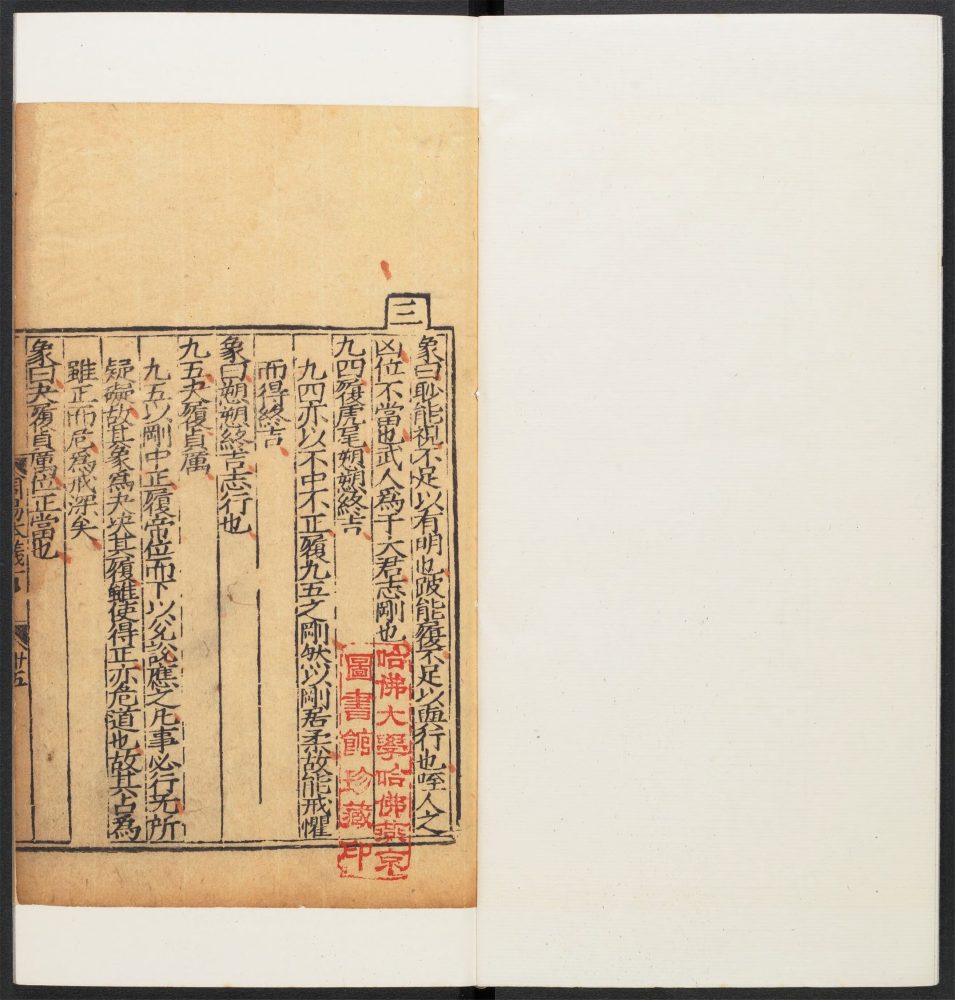 三
象曰眇能視不足以有明也跛能履不足以與行也咥人之
凶位不當也武人爲于大君志剛也
九四履虎尾愬愬終吉
九四亦以不中不正履九五之剛然以剛居柔故能戒懼
而得終吉
象曰愬愬終吉志行也
九五夬履貞厲
九五以剛中正履帝位而下以兊說應之凡事必行无所
疑礙故其象爲夬决其履雖使得正亦危道也故其占爲
雖正而危爲戒深矣
象曰夬履貞厲位正當也
周易本義一
廿五
哈佛大學哈佛燕京
圖書館珍藏印